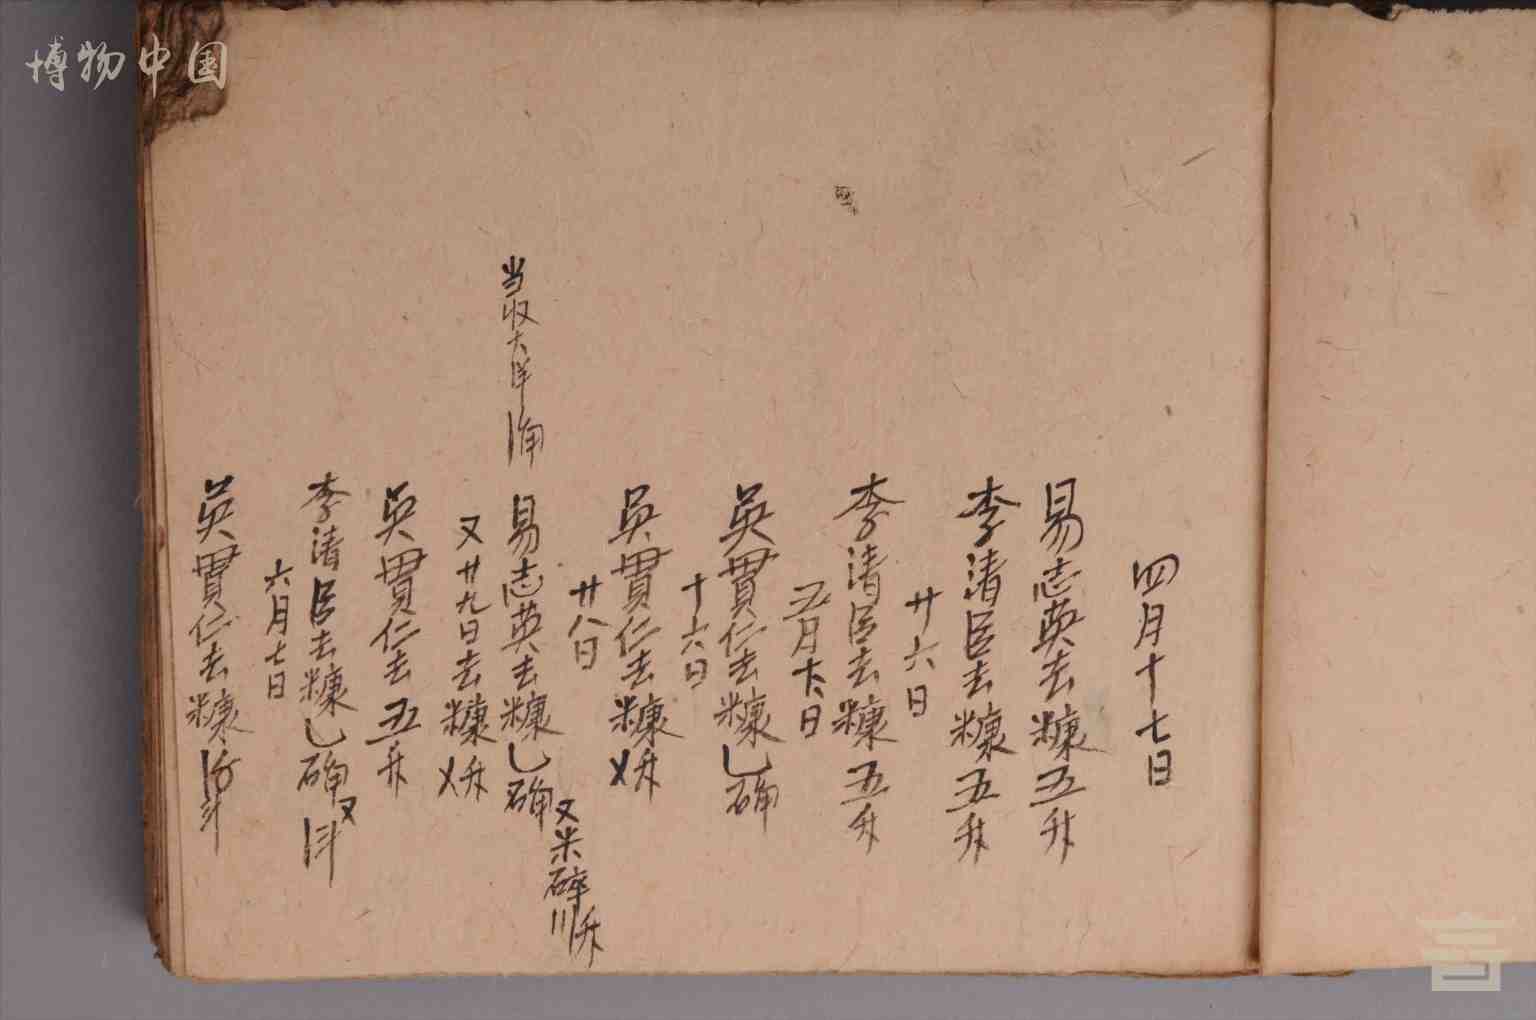 博物中国
四月十七日
易志英去糠五升
李清臣去糠五升
廿六日
李清臣去糠五升
五月十六日
吴贯仁去糠乚硧
十六日
吴贯仁去糠〤升
廿八日
当收大洋角
易志英去糠乚硧
又米碎〣升
又廿九日去糠〤升
吴贯仁去五升
李清臣去糠乚硧又〡斗
六月七日
英贯仁去糠